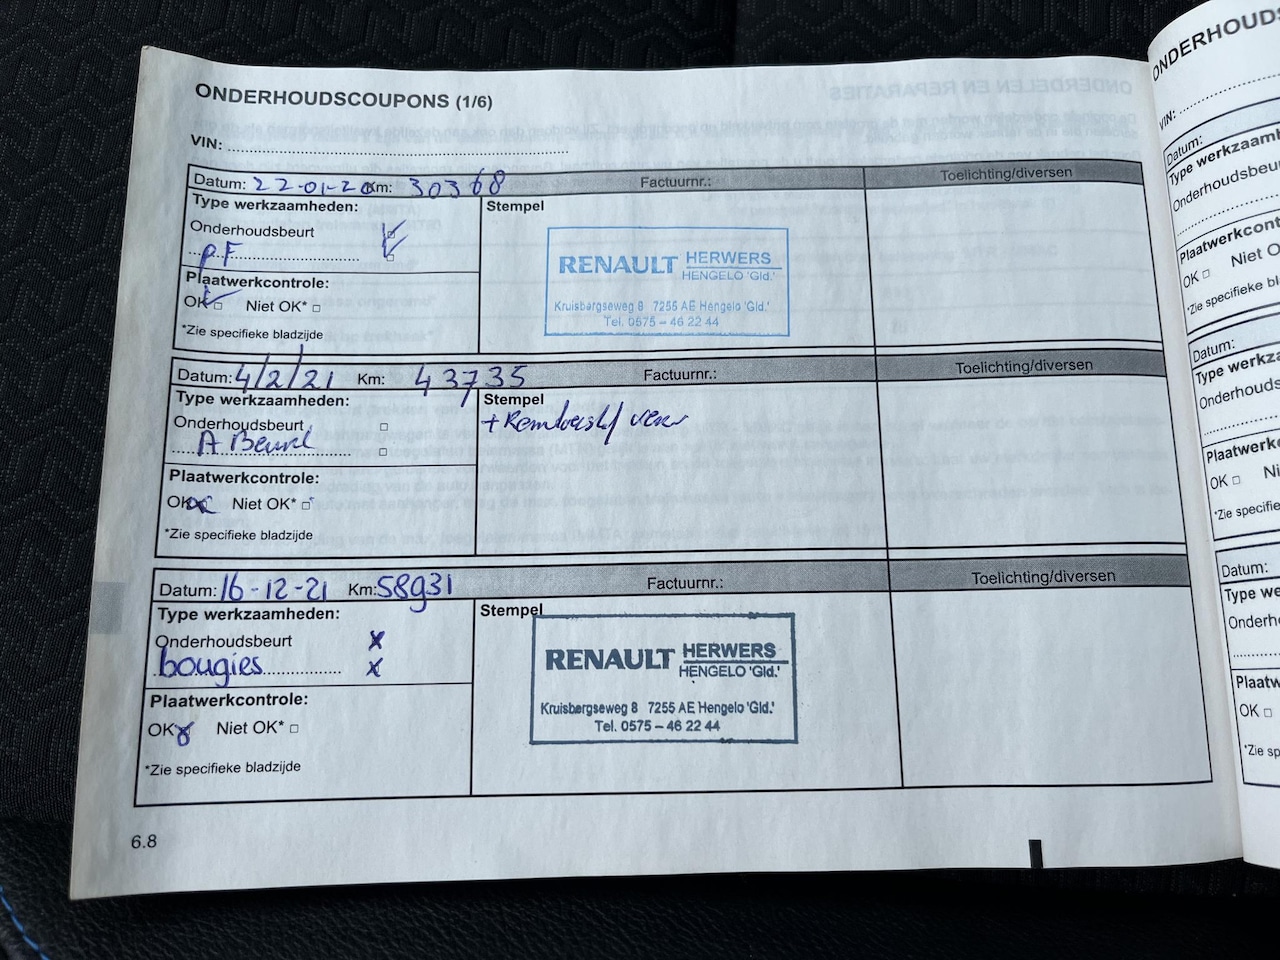 ONDERHOUDSCOUPONS (1/6)
VIN:
Datum: 22-01-20 Km: 30368 Factuurnr.: Toelichting/diversen
Type werkzaamheden: Stempel
Onderhoudsbeurt
PF
RENAULT HERWERS
HENGELO 'Gld.'
Kruisbergseweg 8 7255 AE Hengelo 'Gld.'
Tel. 0575 – 46 22 44
Plaatwerkcontrole:
OK Niet OK*
*Zie specifieke bladzijde
Datum: 4/2/21 Km: 43735 Factuurnr.: Toelichting/diversen
Type werkzaamheden: Stempel
Onderhoudsbeurt
A Beurt
Plaatwerkcontrole:
OK Niet OK*
*Zie specifieke bladzijde
Datum: 16-12-21 Km: 58931 Factuurnr.: Toelichting/diversen
Type werkzaamheden: Stempel
Onderhoudsbeurt X
bougies X
RENAULT HERWERS
HENGELO 'Gld.'
Kruisbergseweg 8 7255 AE Hengelo 'Gld.'
Tel. 0575 – 46 22 44
Plaatwerkcontrole:
OK Niet OK*
*Zie specifieke bladzijde
6.8
VIN:
Datum:
Type
Onderhoudsbeu
Plaatwerkcont
OK Niet
*Zie specifieke
Datum:
Type
Onderhouds
OK
*Zie
Datum:
Type
OK
*Zie